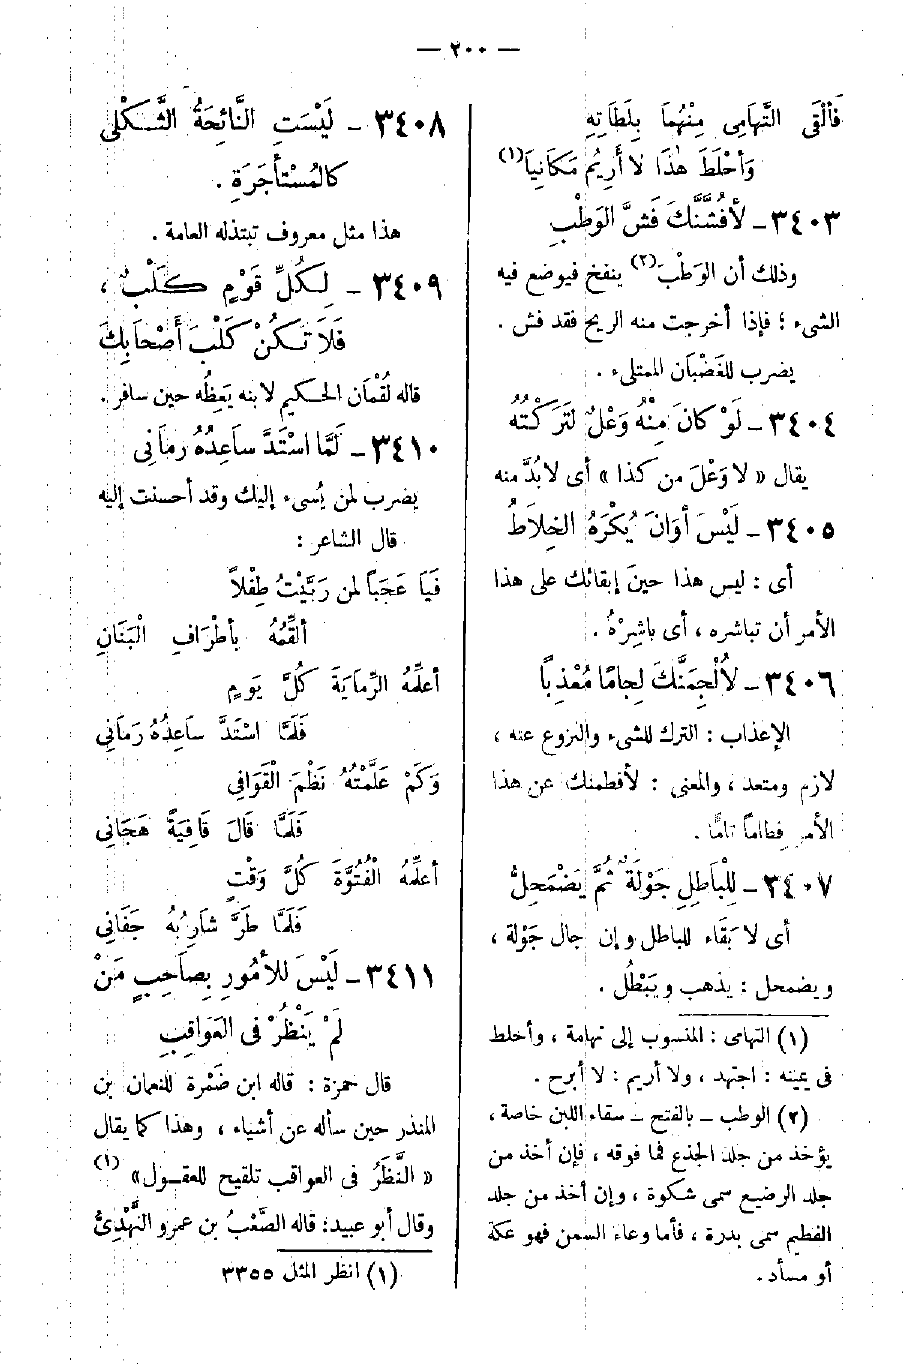 — ٢٠٠ —
فَأَلْقَى التَّهَامِى مِنْهُمَا بِلَطَاتِهِ
وَأَحْلَطَ هٰذَا لا أَرِيُم مَكَانِيَا (١)
٣٤٠٣ – لَأَفُشَّنَّكَ فَشَّ الوَطْبِ
وذلك أن الوَطْبَ (٢) ينفخ فيوضع فيه
الشىء ؛ فإذا أخرجت منه الريح فقد فش .
يضرب للغَضْبَان الممتلىء .
٣٤٠٤ – لَوْ كانَ مِنْهُ وَعْلٌ لَتَرَكْتُهُ
يقال « لا وَعْلَ من كذا » أى لا بُدَّ منه
٣٤٠٥ – لَيْسَ أوَانَ يُكْرَهُ الخِلَاطُ
أى : ليس هذا حينَ إبقائك على هذا
الأمر أن تباشره ، أى باشِرْهُ .
٣٤٠٦ – لَأُلْجِمَنَّكَ لِجاَمًا مُعْذِباً
الإعذاب : الترك للشىء والنزوع عنه ،
لازم ومتعد ، والمعنى : لأفطمنك عن هذا
الأمر فِطامًا تامًّا .
٣٤٠٧ – لِلْبَاطِلِ جَوْلَةٌ ثُمَّ يَضْمَحِلُّ
أى لا بَقَاء للباطل وإن جال جَوْلة ،
ويضمحل : يذهب ويَبْطُل .
(١) التهامى : المنسوب إلى تهامة ، وأحلط
فى يمينه : اجتهد ، ولا أريم : لا أبرح .
(٢) الوطب – بالفتح – سقاء اللبن خاصة ،
يؤخذ من جلد الجذع فما فوقه ، فإن أخذ من
جلد الرضيع سمى شكوة ، وإن أخذ من جلد
الفطيم سمى بدرة ، فأما وعاء السمن فهو عكة
أو مسأد .
٣٤٠٨ – لَيْسَتِ النَّائِحَةُ الثَّكْلَى
كالمُسْتَأْجَرَةِ .
هذا مثل معروف تبتذله العامة .
٣٤٠٩ – لِكُلِّ قَوْمٍ كَلْبٌ ،
فَلَا تَكُنْ كَلْبَ أَصْحَابِكَ
قاله لُقْمَان الحكيم لابنه يَعِظُه حين سافر .
٣٤١٠ – لَمَّا اسْتَدَّ ساَعِدُهُ رماَنِى
يضرب لمن يُسىء إليك وقد أحسنت إليه
قال الشاعر :
فَيَا عَجَباً لمن رَبَّيْتُ طِفْلاً
ألَقِّمُهُ بأطْرَافِ الْبَنَانِ
أعلِّمُهُ الرِّمَايَةَ كُلَّ يَومٍ
فَلَمَّا اسْتَدَّ سَاعِدُهُ رَمَانِى
وَكَمْ عَلَّمْتُهُ نَظْمَ الْقَوَافِى
فَلَمَّا قَالَ قَافِيَةً هَجَانِى
أعلِّمُهُ الْفُتُوَّةَ كُلَّ وَقْتٍ
فَلَمَّا طَرَّ شَارِبُهُ جَفَانِى
٣٤١١ – لَيْسَ لِلأُمُورِ بِصَاحِبٍ مَنْ
لَمْ يَنْظُرْ فى العَوَاقِبِ
قال حمزة : قاله ابن ضَمْرة للنعمان بن
المنذر حين سأله عن أشياء ، وهذا كما يقال
« النَّظَرُ فى العواقب تلقيح للعقول» (١)
وقال أبو عبيد: قاله الصَّعْبُ بن عمرو النَّهْدِىُّ
(١) انظر المثل ٣٣٥٥